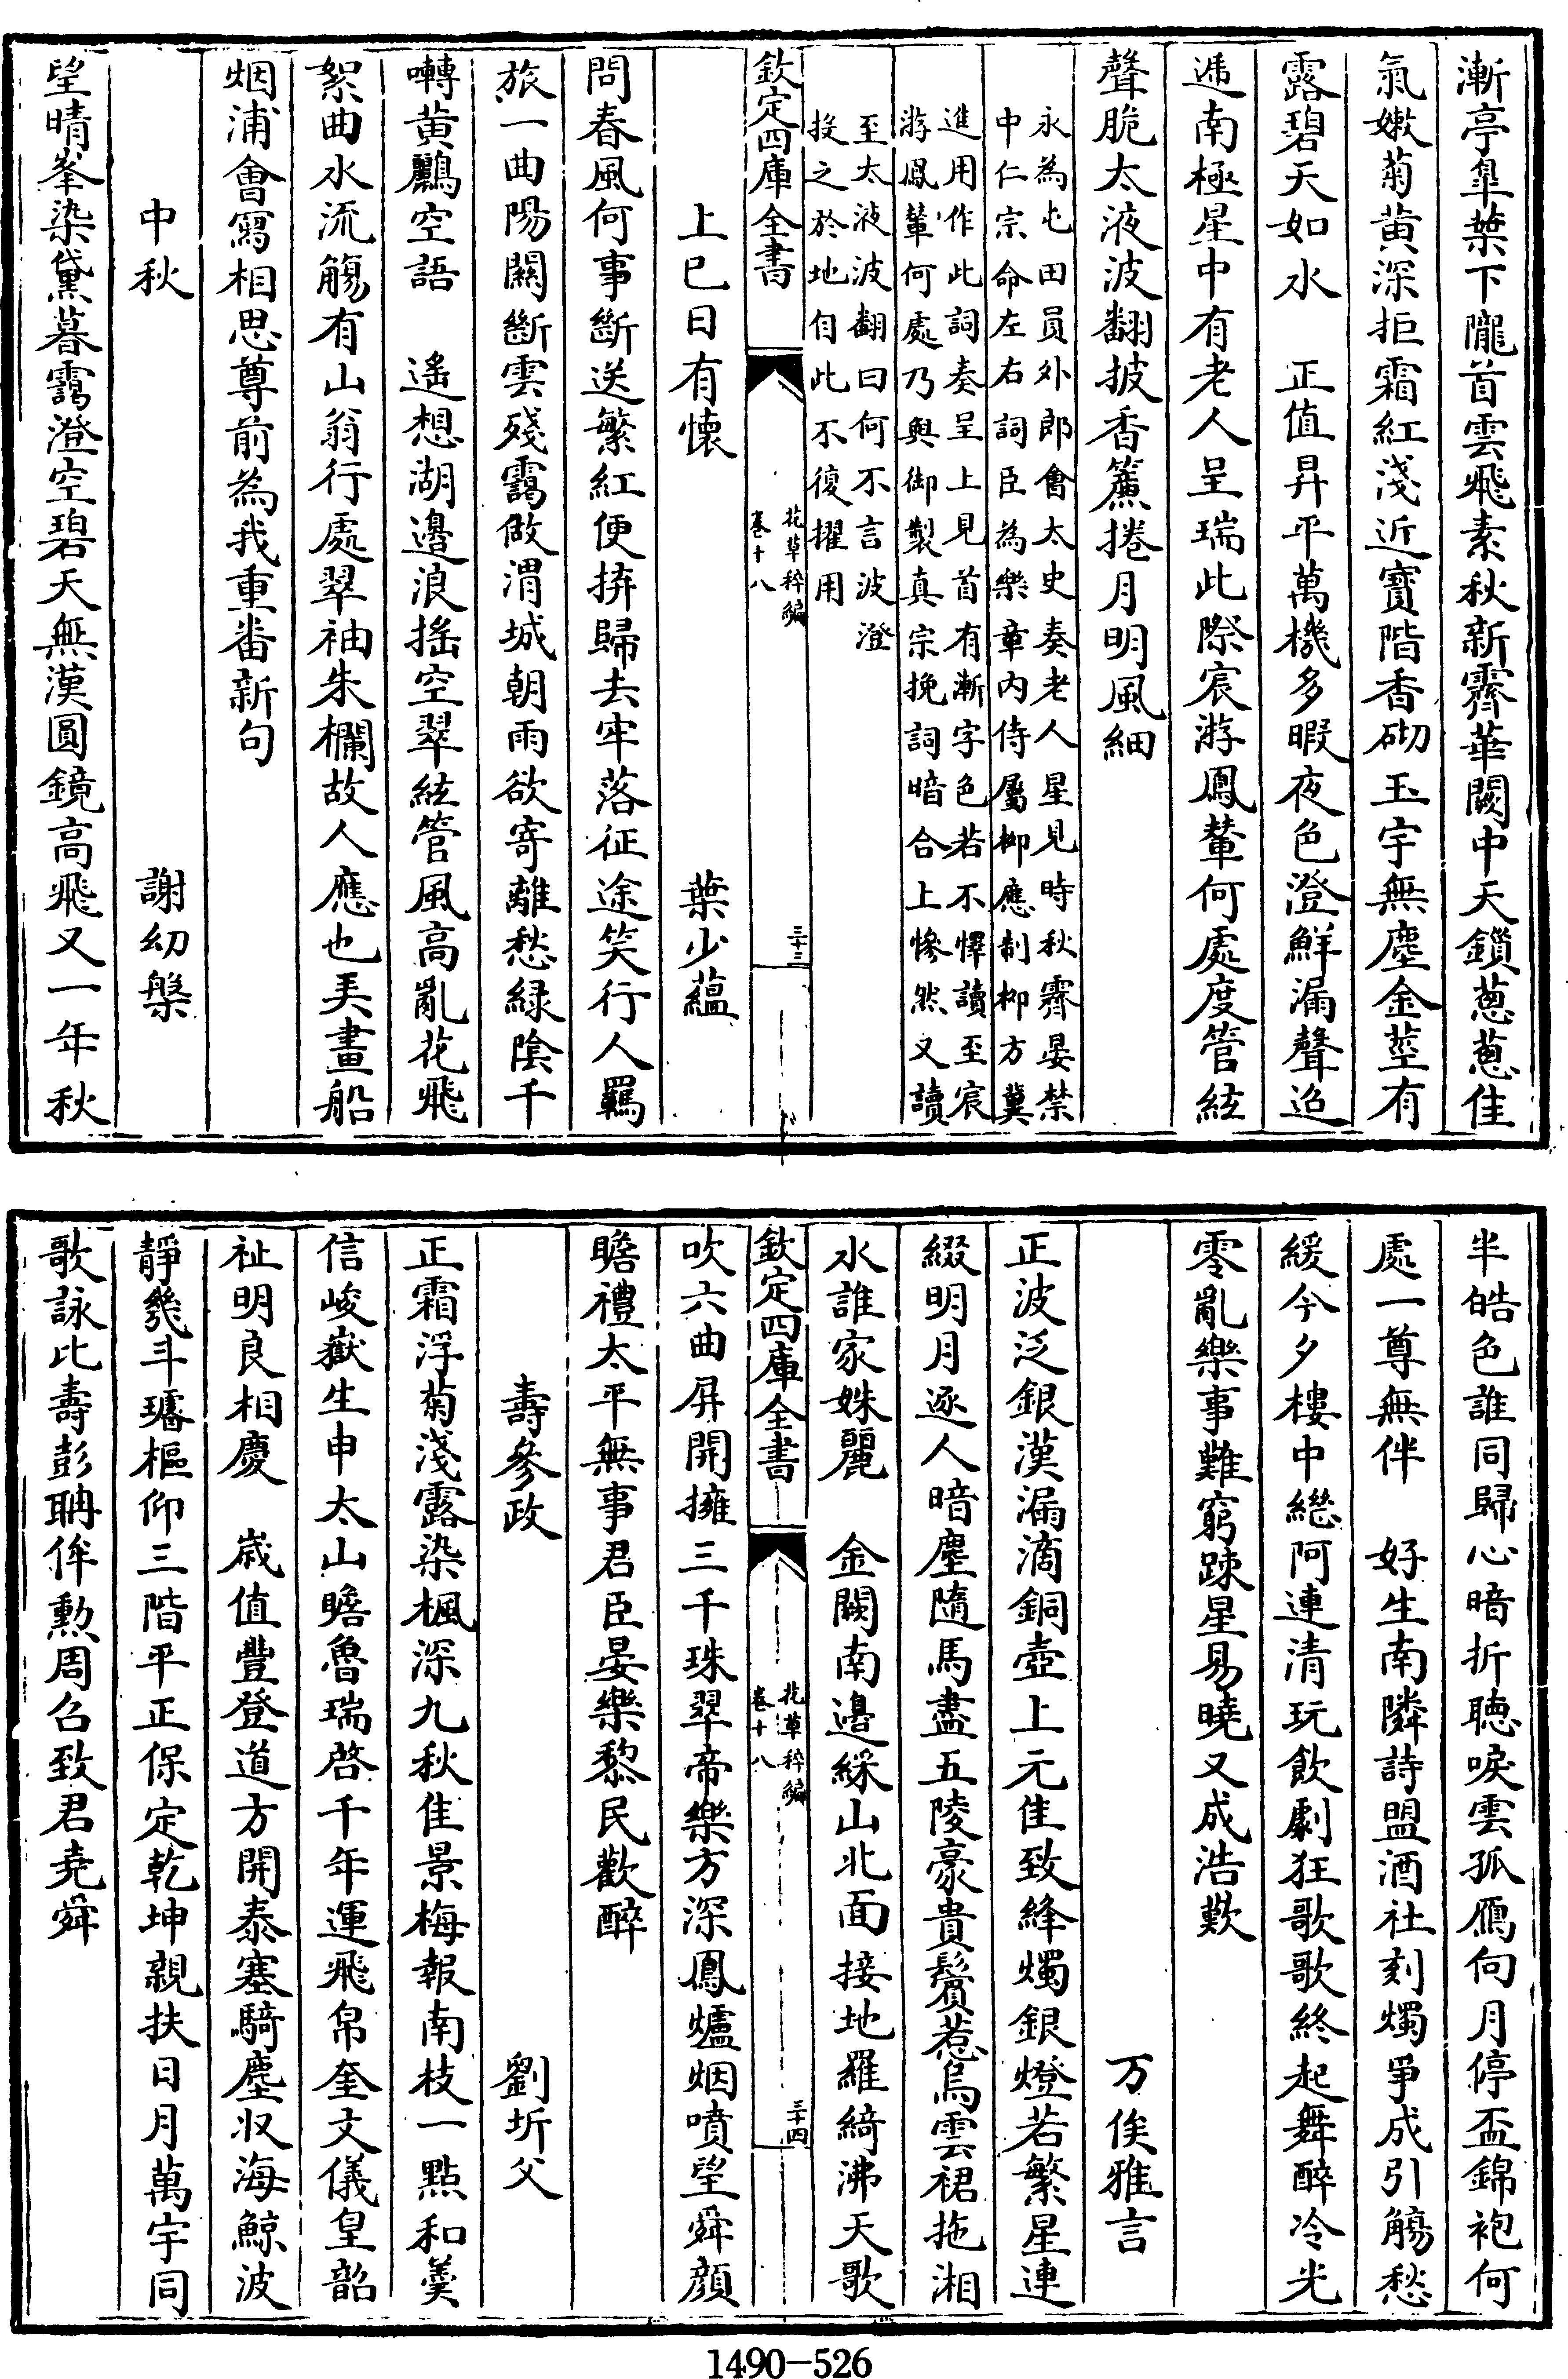 漸亭皐葉下隴首雲飛素秋新霽華闕中天鎖蔥蔥佳
氣嫩菊黄深拒霜紅淺近寳階香砌玉宇無塵金莖有
露碧天如水　正值昇平萬機多暇夜色澄鮮漏聲迢
遞南極星中有老人呈瑞此際宸游鳳輦何處度管絃
聲脆太液波翻披香簾捲月明風細
永為屯田員外郎會太史奏老人星見時秋霽晏禁
中仁宗命左右詞臣為樂章内侍屬柳應制柳方冀
進用作此詞奏呈上見首有漸字色若不懌讀至宸
游鳳輦何處乃與御製真宗挽詞暗合上慘然又讀
至太液波翻曰何不言波澄
投之於地自此不復擢用
欽定四庫全書
花草稡編
卷十八
三十三
上巳日有懷　葉少蘊
問春風何事斷送繁紅便拚歸去牢落征途笑行人羈
旅一曲陽關斷雲殘靄做渭城朝雨欲寄離愁緑陰千
囀黄鸝空語　遙想湖邉浪摇空翠絃管風高亂花飛
絮曲水流觴有山翁行處翠袖朱欄故人應也弄畫船
烟浦會寫相思尊前為我重畨新句
中秋　謝幼槃
望晴峯染黛暮靄澄空碧天無漢圓鏡高飛又一年秋
半皓色誰同歸心暗折聴唳雲孤鴈向月停盃錦袍何
處一尊無伴　好生南隣詩盟酒社刻燭爭成引觴愁
緩今夕樓中繼阿連清玩飲劇狂歌歌終起舞醉冷光
零亂樂事難窮踈星易曉又成浩歎
万俟雅言
正波泛銀漢漏滴銅壺上元佳致絳燭銀燈若繁星連
綴明月逐人暗塵隨馬盡五陵豪貴鬢惹烏雲裙拖湘
水誰家姝麗　金闕南邉綵山北面接地羅綺沸天歌
欽定四庫全書
花草稡編
卷十八
三十四
吹六曲屏開擁三千珠翠帝樂方深鳳爐烟噴望舜顔
瞻禮太平無事君臣晏樂黎民歡醉
壽參政　劉圻父
正霜浮菊淺露染楓深九秋佳景梅報南枝一點和羹
信峻嶽生申太山瞻魯瑞啓千年運飛帛奎文儀皇韶
祉明良相慶　歳值豐登道方開泰塞騎塵收海鯨波
靜幾斗璿樞仰三階平正保定乾坤親扶日月萬宇同
歌詠比壽彭聃侔勲周召致君堯舜
1490—526